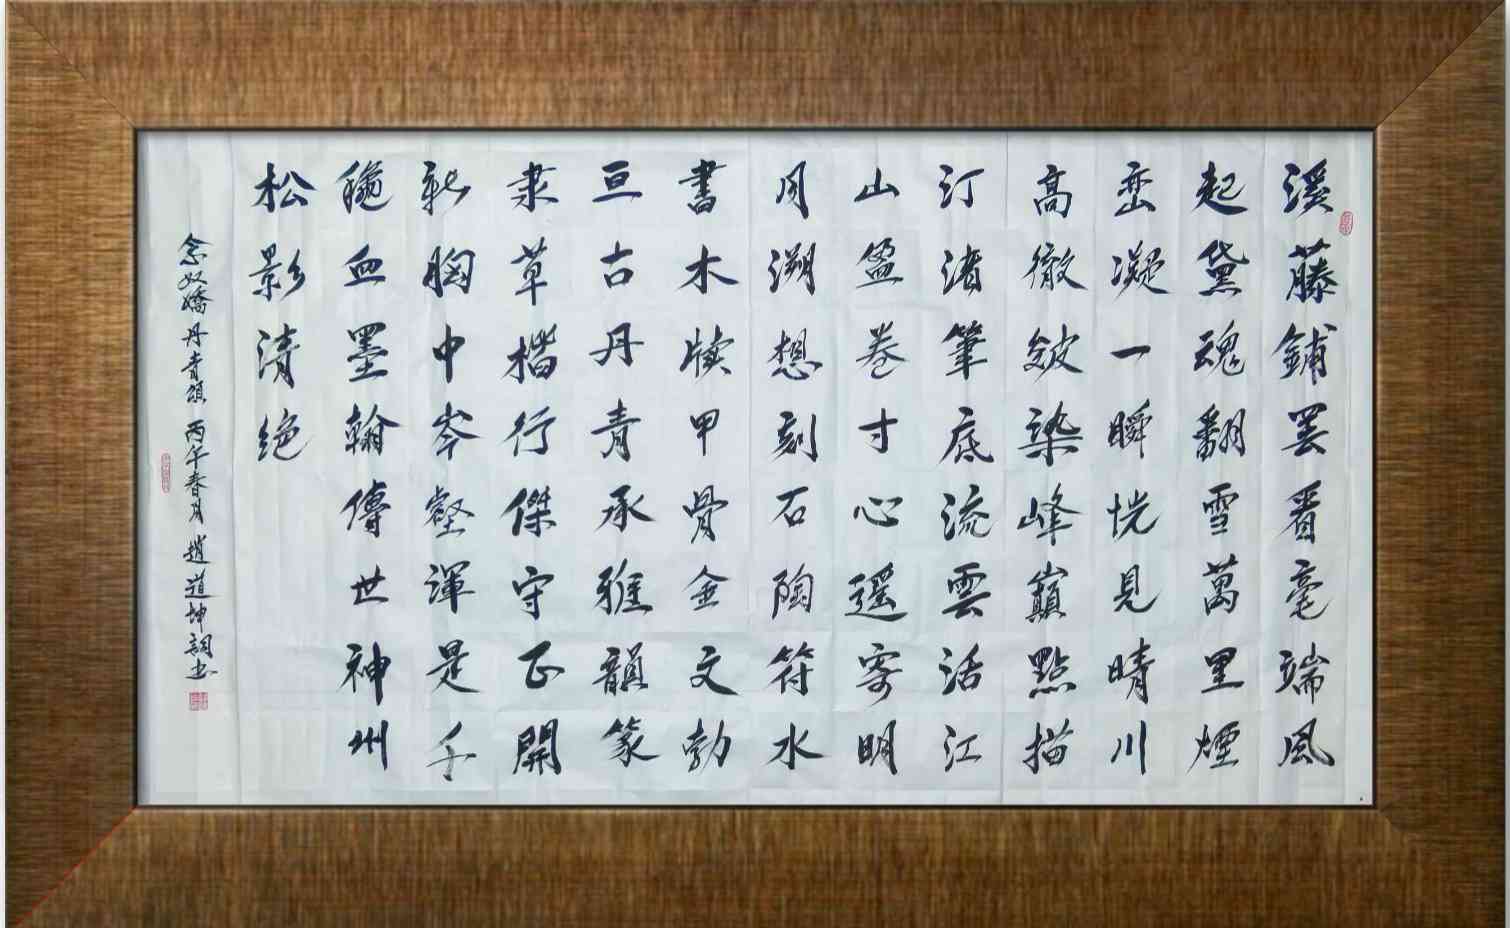 溪藤鋪罢看毫端風
起黛魂翻雪萬里煙
峦凝一瞬恍見晴川
高徹皴染峰巔點描
汀渚筆底流雲活江
山盈卷寸心遥寄明
月溯想刻石陶符水
書木牍甲骨金文勃
亘古丹青承雅韻篆
隶草楷行傑守正開
新胸中岑壑渾是千
穐血墨翰傳世神州
松影清绝
念奴嬌丹青頌 丙午春月 趙道坤詞书